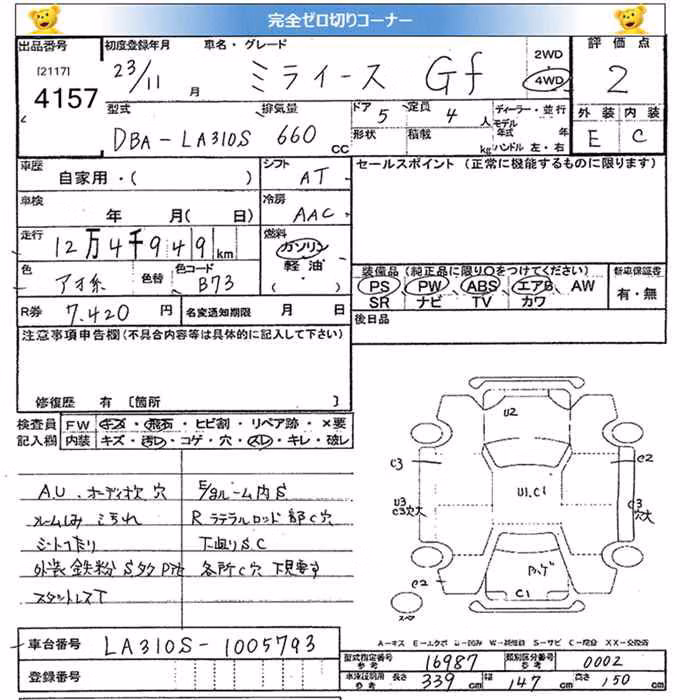 完全ゼロ切りコーナー
出品番号 初度登録年月 車名・グレード 2WD 評価点
[2117] 4157 23/11 月 ミライース Gf 4WD 2
型式 排気量 ドア 5 定員 4 人 ディーラー・並行 外装 内装
DBA-LA310S 660 cc 形状 積載 kg モデル年式 年 ハンドル 左・右 E C
車歴 シフト セールスポイント (正常に機能するものに限ります)
自家用・( ) AT
車検 冷房
年 月( 日) AAC
走行 燃料
12万4千949km ガソリン
色 色替 色コード 軽油 装備品 (純正品に限り○をつけてください) 新車保証書
アオ系 B73 ( ・ ) PS PW ABS エアB AW 有・無
SR ナビ TV カワ
R券 7,420 円 名変通知期限 月 日 後日品
注意事項申告欄(不具合内容等は具体的に記入して下さい)
修復歴 有 [箇所 ]
検査員 FW キズ・飛石・ヒビ割・リペア跡・×要
記入欄 内装 キズ・汚レ・コゲ・穴・スレ・キレ・破レ
A.U.オーディオ欠 穴
ルーム内S
R ラテラルロッド部C穴
シートヘたり 下廻りS.C
外装 鉄粉 各所C穴 下見要す
スタッドレス
U2
C3 C2
U1.C1
U3 C3穴大 C3穴大
C2 C1
スペア
車台番号 LA310S-1005793
登録番号
型式指定番号 参考 16987 類別区分番号 参考 0002
車庫証明用 参考 長さ 339 cm 幅 147 cm 高さ 150 cm